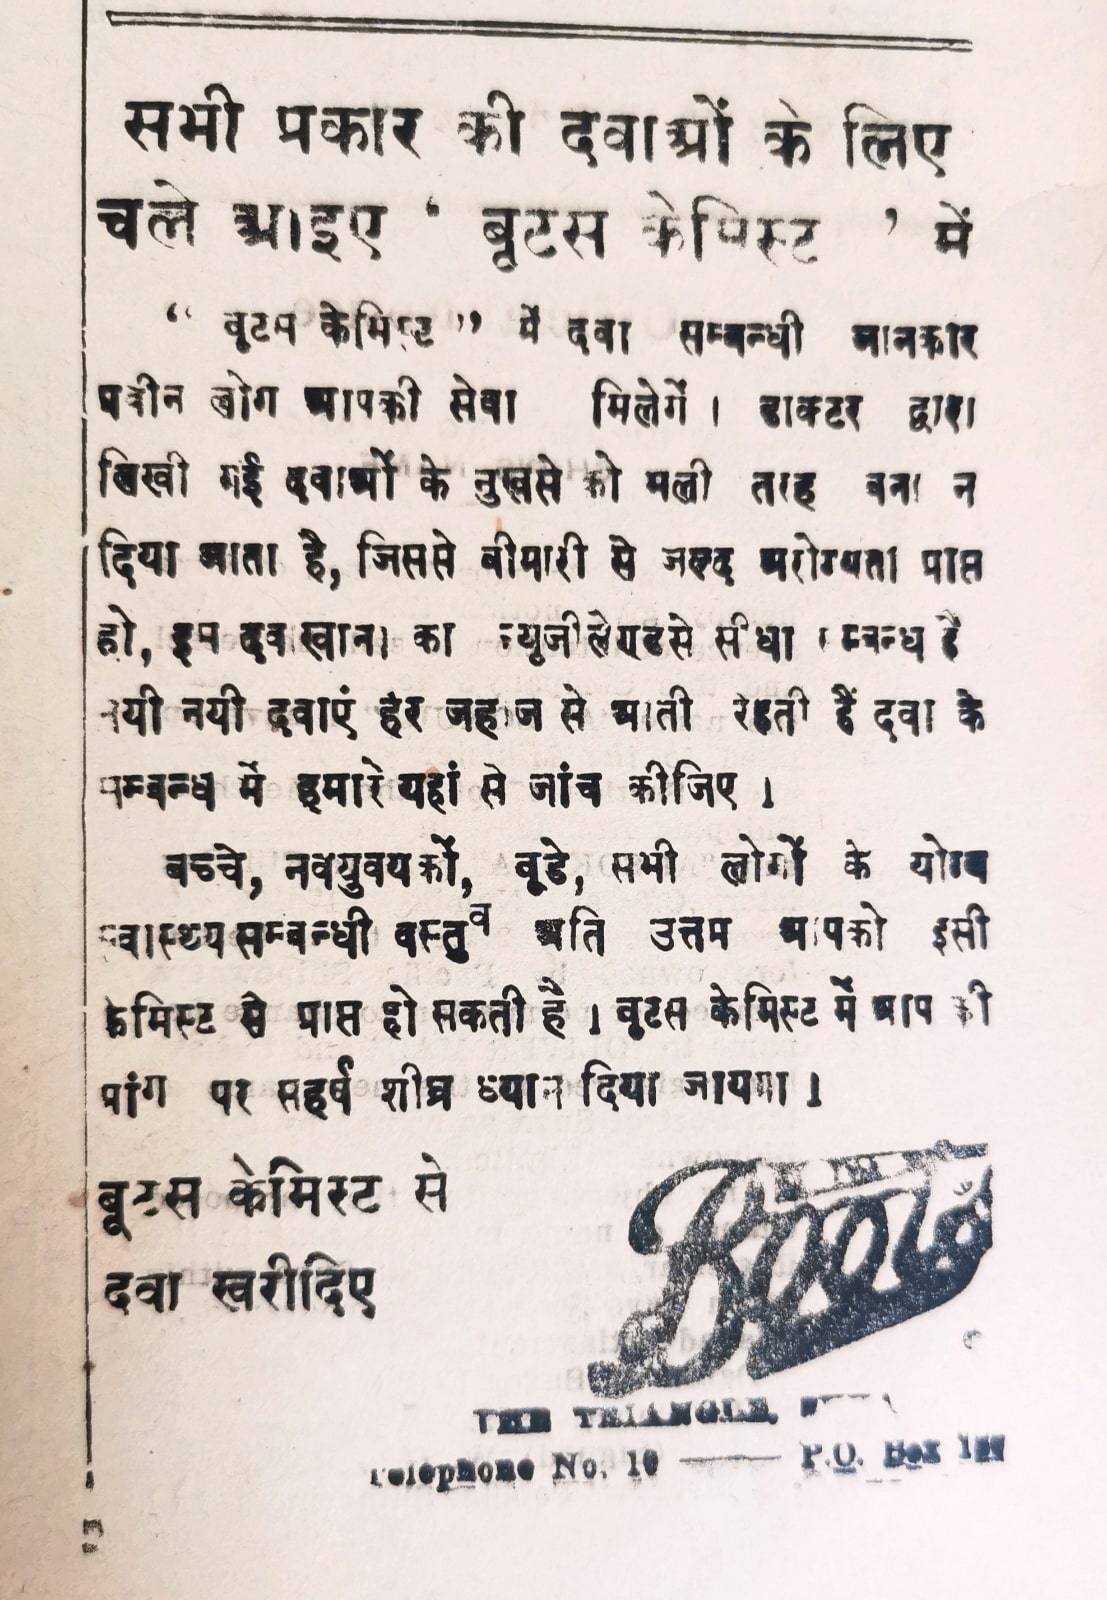 सभी प्रकार की दवाओं के लिए
चले आइए ‘ बूटस केमिस्ट ’ में
“ बूटस केमिस्ट ” में दवा सम्बन्धी जानकार
प्रवीन लोग आपकी सेवा मिलेगें । डाक्टर द्वारा
लिखी गई दवाओं के नुखसे को भली तरह बना न
दिया जाता है, जिससे बीमारी से जल्द अरोग्यता प्राप्त
हो, इस दवाखाना का न्यूजीलेण्डसे सीधा सम्बन्ध है
नयी नयी दवाएं हर जहाज से आती रहती हैं दवा के
सम्बन्ध में हमारे यहां से जांच कीजिए ।
बच्चे, नवयुवयकों, बूडे, सभी लोगों के योग्य
स्वास्थ्य सम्बन्धी वस्तुव अति उत्तम आपको इसी
केमिस्ट से प्राप्त हो सकती है । बूटस केमिस्ट में आप की
मांग पर सहर्ष शीघ्र ध्यान दिया जायगा ।
बूटस केमिस्ट से
दवा खरीदिए
Boots
THE TRIANGLE,
Telephone No. 10 —— P.O. Box